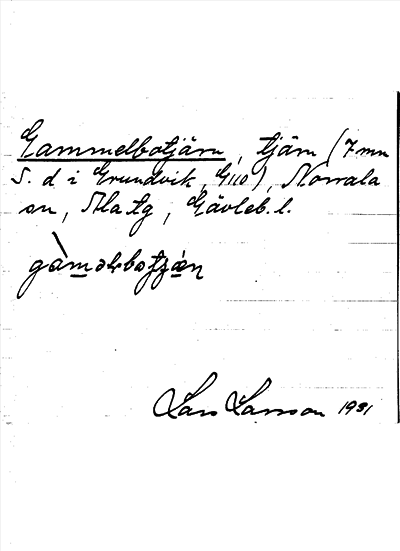 Gammelbotjärn, tjärn (7 mm
S. d i Grundvik, G110), Norrala
sn, Ala tg, Gävleb. l.
Lars Larsson 1931